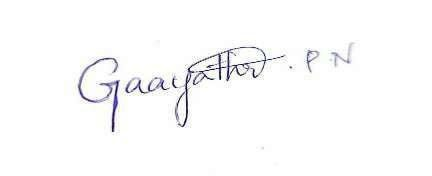 Gaayathri . P N